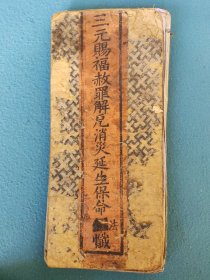 三元賜福赦罪解厄消災延生保命法懺